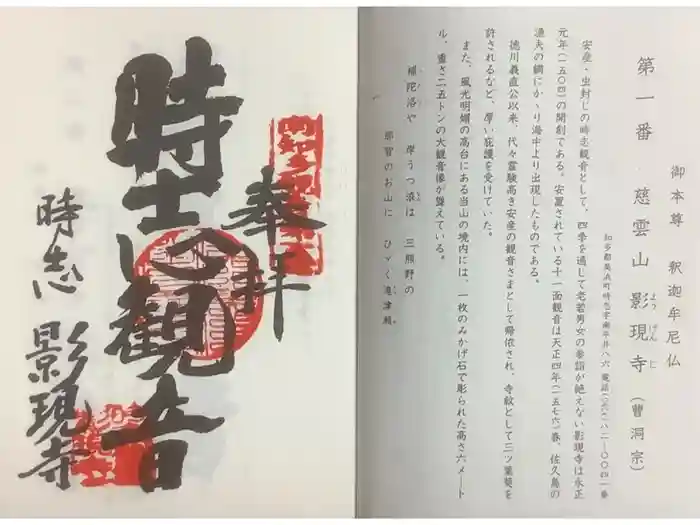 御本尊 釈迦牟尼仏
第一番 慈雲山 影現寺(曹洞宗)
ようげんじ
知多郡美浜町時志字南平井八六
安産・虫封じの時志観音として、四季を通じて老若男女の参詣が絶えない影現寺は永正
元年(一五〇四)の開創である。安置されている十一面観音は天正四年(一五七六)春、佐久島の
漁夫の網にかゝり海中より出現したものである。
徳川義直公以来、代々霊験高き安産の観音さまとして帰依され、寺紋として三ツ葉葵を
許されるなど、厚い庇護を受けていた。
また、風光明媚の高台にある当山の境内には、一枚のみかげ石で彫られた高さ六メート
ル、重さ二五トンの大観音像が聳えている。
補陀洛や 岸うつ浪は 三熊野の
那智のお山に ひゞく滝津瀬
奉拝
時志観音
時志 影現寺